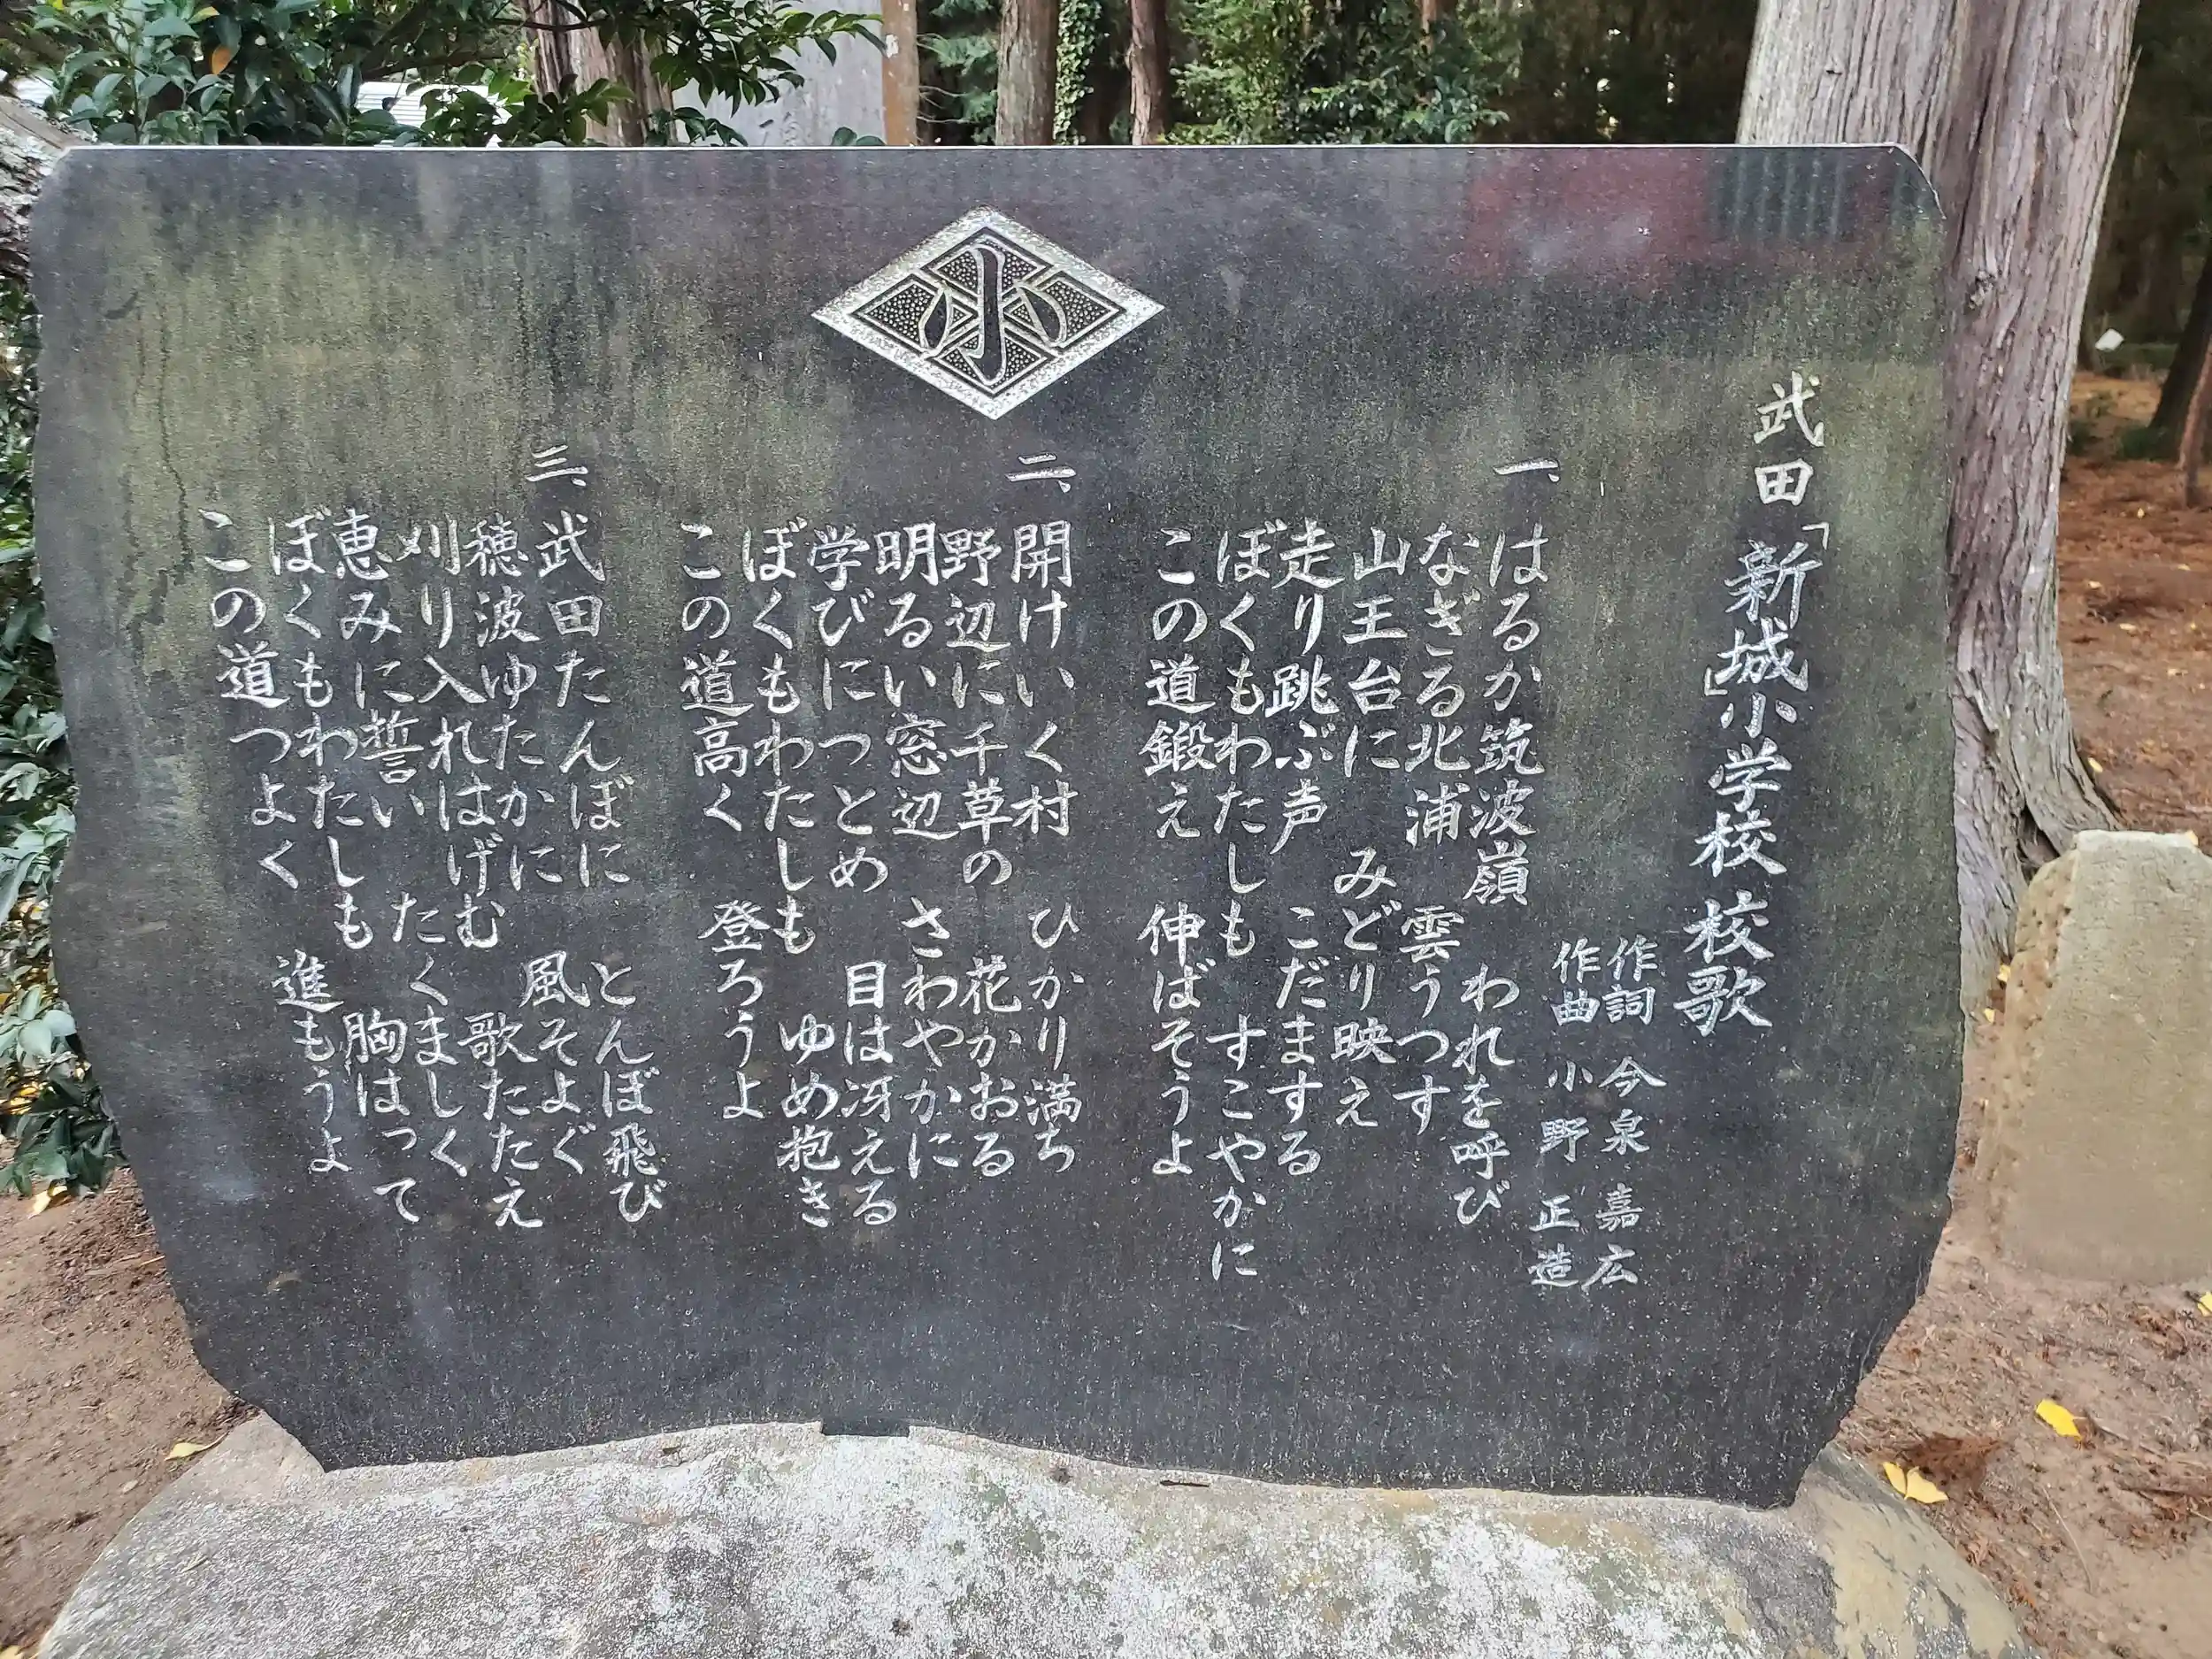 小
武田「新城」小学校 校歌
作詞 今泉 嘉広
作曲 小野 正造
一、はるか筑波嶺 われを呼び
なぎる北浦 雲うつす
山王台に みどり映え
走り跳ぶ声 こだまする
ぼくもわたしも すこやかに
この道鍛え 伸ばそうよ
二、開けいく村 ひかり満ち
野辺に千草の 花かおる
明るい窓辺 さわやかに
学びにつとめ 目は冴える
ぼくもわたしも ゆめ抱き
この道高く 登ろうよ
三、武田たんぼに とんぼ飛び
穂波ゆたかに 風そよぐ
刈り入れはげむ 歌たたえ
恵みに誓い たくましく
ぼくもわたしも 胸はって
この道つよく 進もうよ